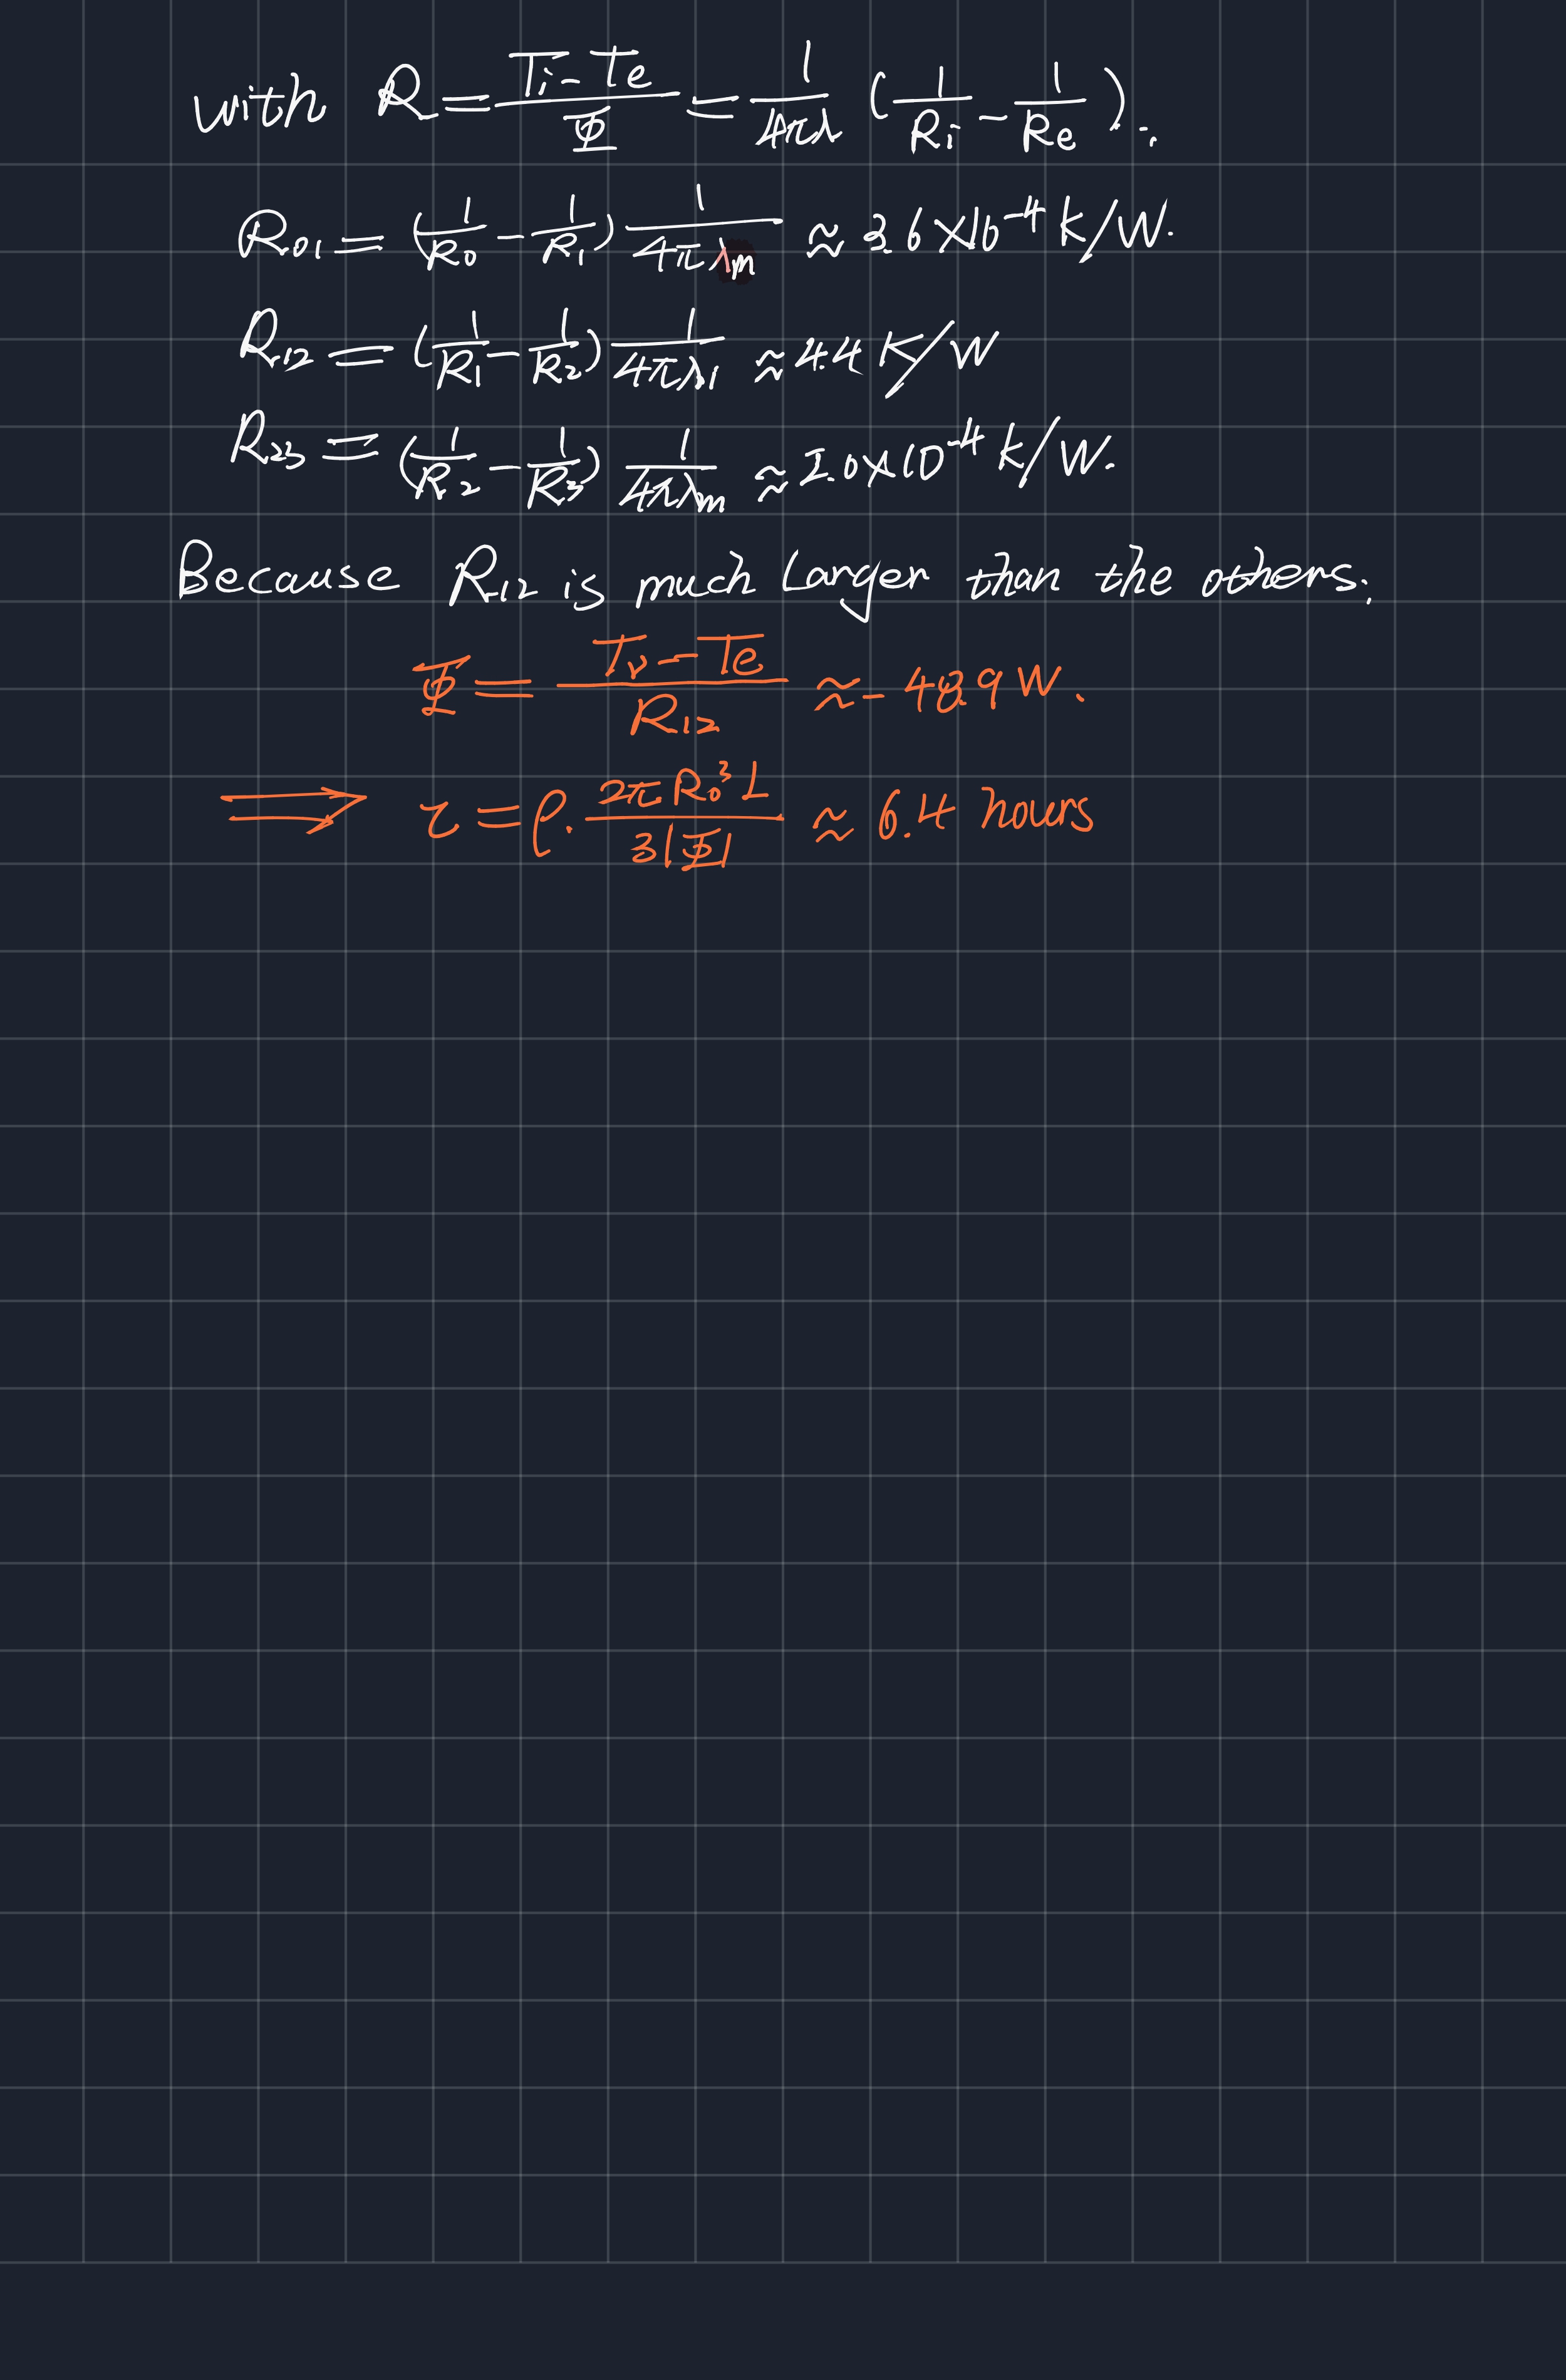 with R = (Ti - Te)/Φ = 1/(4πλ) (1/Ri - 1/Re) ∴
R01 = (1/R0 - 1/R1) 1/(4πλm) ≈ 3.6 × 10^-4 K/W.
R12 = (1/R1 - 1/R2) 1/(4πλ1) ≈ 4.4 K/W
R23 = (1/R2 - 1/R3) 1/(4πλm) ≈ 2.0 × 10^-4 K/W.
Because R12 is much larger than the others.
Φ = (Tv - Te)/R12 ≈ - 48.9 W.
⟹ τ = ρ · (2π R0^3 L)/(3|Φ|) ≈ 6.4 hours